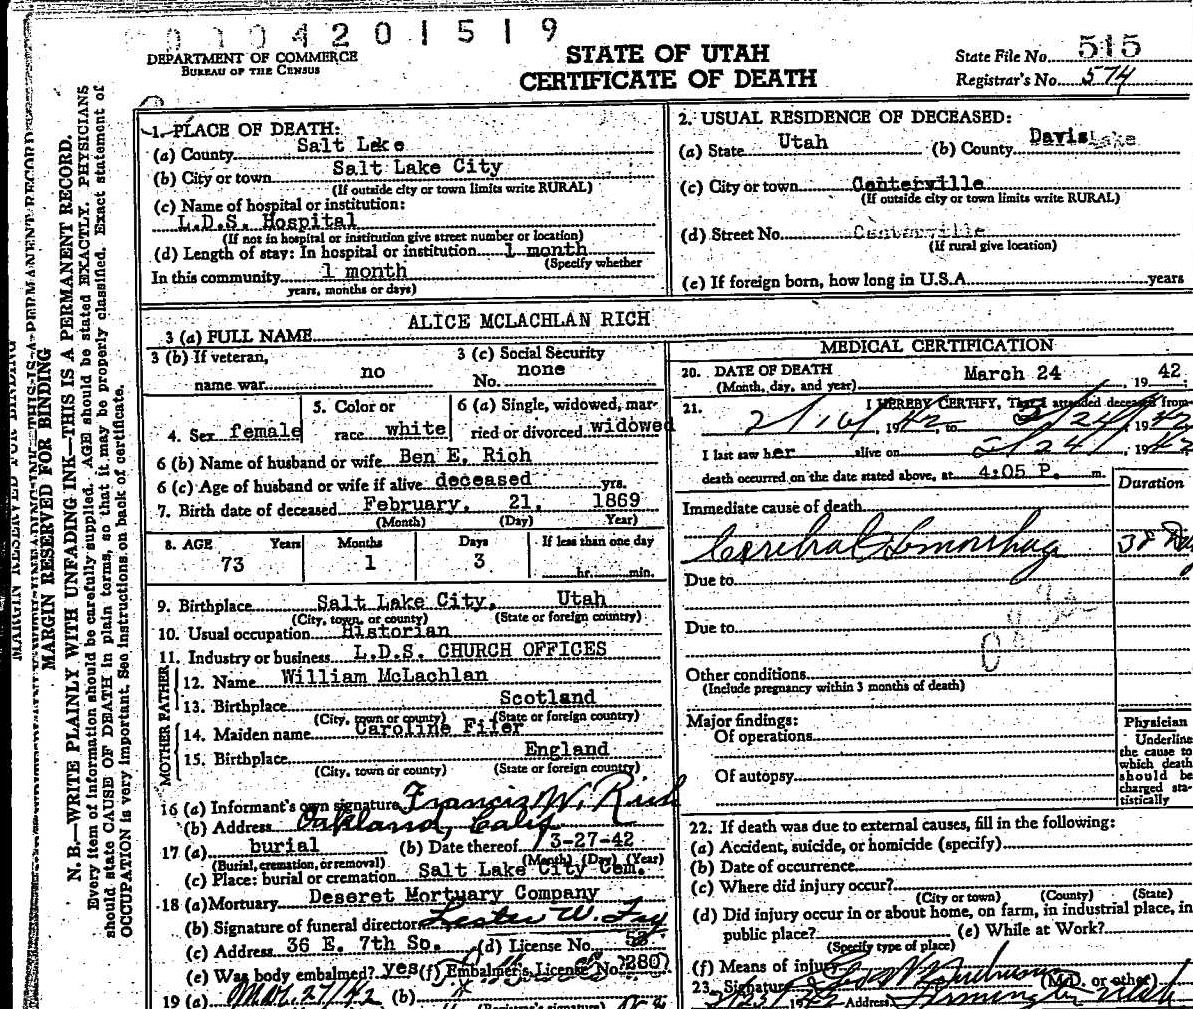 0 0 0 4 2 0 1 5 1 9
DEPARTMENT OF COMMERCE
BUREAU OF THE CENSUS
STATE OF UTAH
CERTIFICATE OF DEATH
State File No. 515
Registrar's No. 574
MARGIN RESERVED FOR BINDING
N. B.—WRITE PLAINLY WITH UNFADING INK—THIS IS A PERMANENT RECORD.
Every item of information should be carefully supplied. AGE should be stated EXACTLY. PHYSICIANS
should state CAUSE OF DEATH in plain terms, so that it may be properly classified. Exact statement of
OCCUPATION is very important. See instructions on back of certificate.
1. PLACE OF DEATH:
(a) County Salt Lake
(b) City or town Salt Lake City
(If outside city or town limits write RURAL)
(c) Name of hospital or institution:
L.D.S. Hospital
(If not in hospital or institution give street number or location)
(d) Length of stay: In hospital or institution 1 month
(Specify whether
In this community 1 month
years, months or days)
2. USUAL RESIDENCE OF DECEASED:
(a) State Utah (b) County Davis Lake
(c) City or town Centerville
(If outside city or town limits write RURAL)
(d) Street No. Centerville
(If rural give location)
(e) If foreign born, how long in U.S.A. years
3 (a) FULL NAME ALICE MCLACHLAN RICH
3 (b) If veteran, name war no
3 (c) Social Security No. none
4. Sex female
5. Color or race white
6 (a) Single, widowed, married or divorced widowed
6 (b) Name of husband or wife Ben E. Rich
6 (c) Age of husband or wife if alive deceased yrs.
7. Birth date of deceased February, 21, 1869
(Month) (Day) Year)
8. AGE Years Months Days If less than one day
73 1 3 hr. min.
9. Birthplace Salt Lake City, Utah
(City, town, or county) (State or foreign country)
10. Usual occupation Historian
11. Industry or business L.D.S. CHURCH OFFICES
FATHER
12. Name William McLachlan
13. Birthplace Scotland
(City, town or county) (State or foreign country)
MOTHER
14. Maiden name Caroline Fifer
15. Birthplace England
(City, town or county) (State or foreign country)
16 (a) Informant's own signature Francis W. Rich
(b) Address Oakland, Calif
17 (a) burial (b) Date thereof 3-27-42
(Burial, cremation, or removal) (Month) (Day) (Year)
(c) Place: burial or cremation Salt Lake City Cem.
18 (a) Mortuary Deseret Mortuary Company
(b) Signature of funeral director Lester W. Fay
(c) Address 36 E. 7th So. (d) License No.
(e) Was body embalmed? yes (f) Embalmer's License No. 280
19 (a) Mar. 27/42 (b)
(Registrar's signature)
MEDICAL CERTIFICATION
20. DATE OF DEATH
(Month, day, and year) March 24, 19 42
21. I HEREBY CERTIFY, That I attended deceased from
2/16/, 19 42, to 3/24/, 19 42
I last saw her alive on 3/24/, 19 42
death occurred on the date stated above, at 4:05 P. m.
Duration
Immediate cause of death
Cerebral Hemorrhage 38 Days
Due to
Due to
Other conditions
(Include pregnancy within 3 months of death)
Major findings:
Of operations
Of autopsy
Physician
Underline
the cause to
which death
should be
charged sta-
tistically
22. If death was due to external causes, fill in the following:
(a) Accident, suicide, or homicide (specify)
(b) Date of occurrence
(c) Where did injury occur?
(City or town) (County) (State)
(d) Did injury occur in or about home, on farm, in industrial place, in
public place? (e) While at Work?
(Specify type of place)
(f) Means of injury
23. Signature (M.D. or other)
19 42 Address Farmington Utah